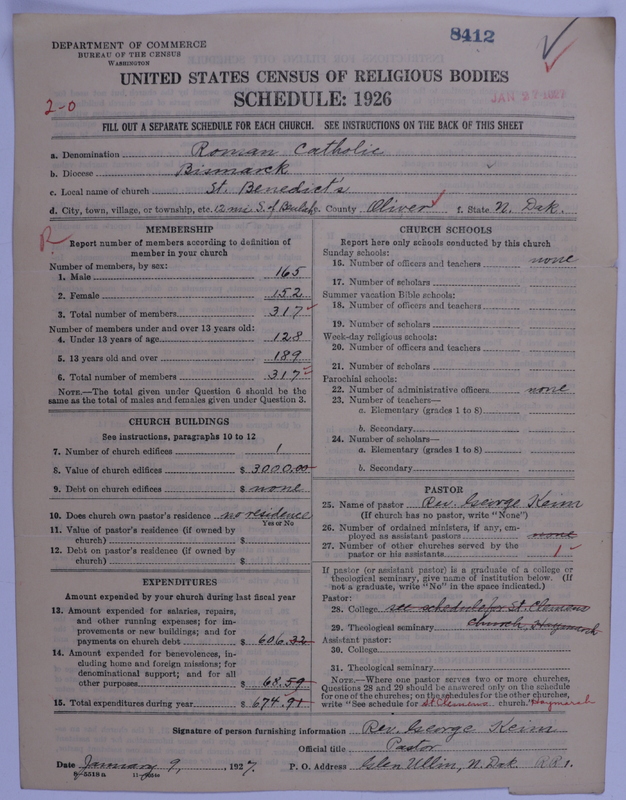 8412
DEPARTMENT OF COMMERCE
BUREAU OF THE CENSUS
WASHINGTON
UNITED STATES CENSUS OF RELIGIOUS BODIES
SCHEDULE: 1926
2-0
JAN 27 1927
FILL OUT A SEPARATE SCHEDULE FOR EACH CHURCH. SEE INSTRUCTIONS ON THE BACK OF THIS SHEET
a. Denomination Roman Catholic
b. Diocese Bismarck
c. Local name of church St. Benedict's
d. City, town, village, or township, etc. 12 mi S. of Beulah e. County Oliver f. State N. Dak.
R
MEMBERSHIP
Report number of members according to definition of
member in your church
Number of members, by sex:
1. Male 165
2. Female 152
3. Total number of members 317
Number of members under and over 13 years old:
4. Under 13 years of age 128
5. 13 years old and over 189
6. Total number of members 317
NOTE.—The total given under Question 6 should be the
same as the total of males and females given under Question 3.
CHURCH BUILDINGS
See instructions, paragraphs 10 to 12
7. Number of church edifices 1
8. Value of church edifices $ 3000.00
9. Debt on church edifices $ none
10. Does church own pastor's residence no residence
Yes or No
11. Value of pastor's residence (if owned by
church) $
12. Debt on pastor's residence (if owned by
church) $
EXPENDITURES
Amount expended by your church during last fiscal year
13. Amount expended for salaries, repairs,
and other running expenses; for im-
provements or new buildings; and for
payments on church debt $ 606.32
14. Amount expended for benevolences, in-
cluding home and foreign missions; for
denominational support; and for all
other purposes $ 68.59
15. Total expenditures during year $ 674.91
CHURCH SCHOOLS
Report here only schools conducted by this church
Sunday schools:
16. Number of officers and teachers none
17. Number of scholars
Summer vacation Bible schools:
18. Number of officers and teachers
19. Number of scholars
Week-day religious schools:
20. Number of officers and teachers
21. Number of scholars
Parochial schools:
22. Number of administrative officers none
23. Number of teachers—
a. Elementary (grades 1 to 8)
b. Secondary
24. Number of scholars—
a. Elementary (grades 1 to 8)
b. Secondary
PASTOR
25. Name of pastor Rev. George Keim
(If church has no pastor, write "None")
26. Number of ordained ministers, if any, em-
ployed as assistant pastors none
27. Number of other churches served by the
pastor or his assistants 1
If pastor (or assistant pastor) is a graduate of a college or
theological seminary, give name of institution below. (If
not a graduate, write "No" in the space indicated.)
Pastor:
28. College see schedule for St. Clemens
29. Theological seminary church, Haymarsh
Assistant pastor:
30. College
31. Theological seminary
NOTE.—Where one pastor serves two or more churches,
Questions 28 and 29 should be answered only on the schedule
for one of the churches; on the schedules for the other churches,
write "See schedule for St Clemens church." Haymarsh
Signature of person furnishing information Rev. George Keim
Official title Pastor
Date January 9, 1927. P. O. Address Glen Ullin, N. Dak RR 1.